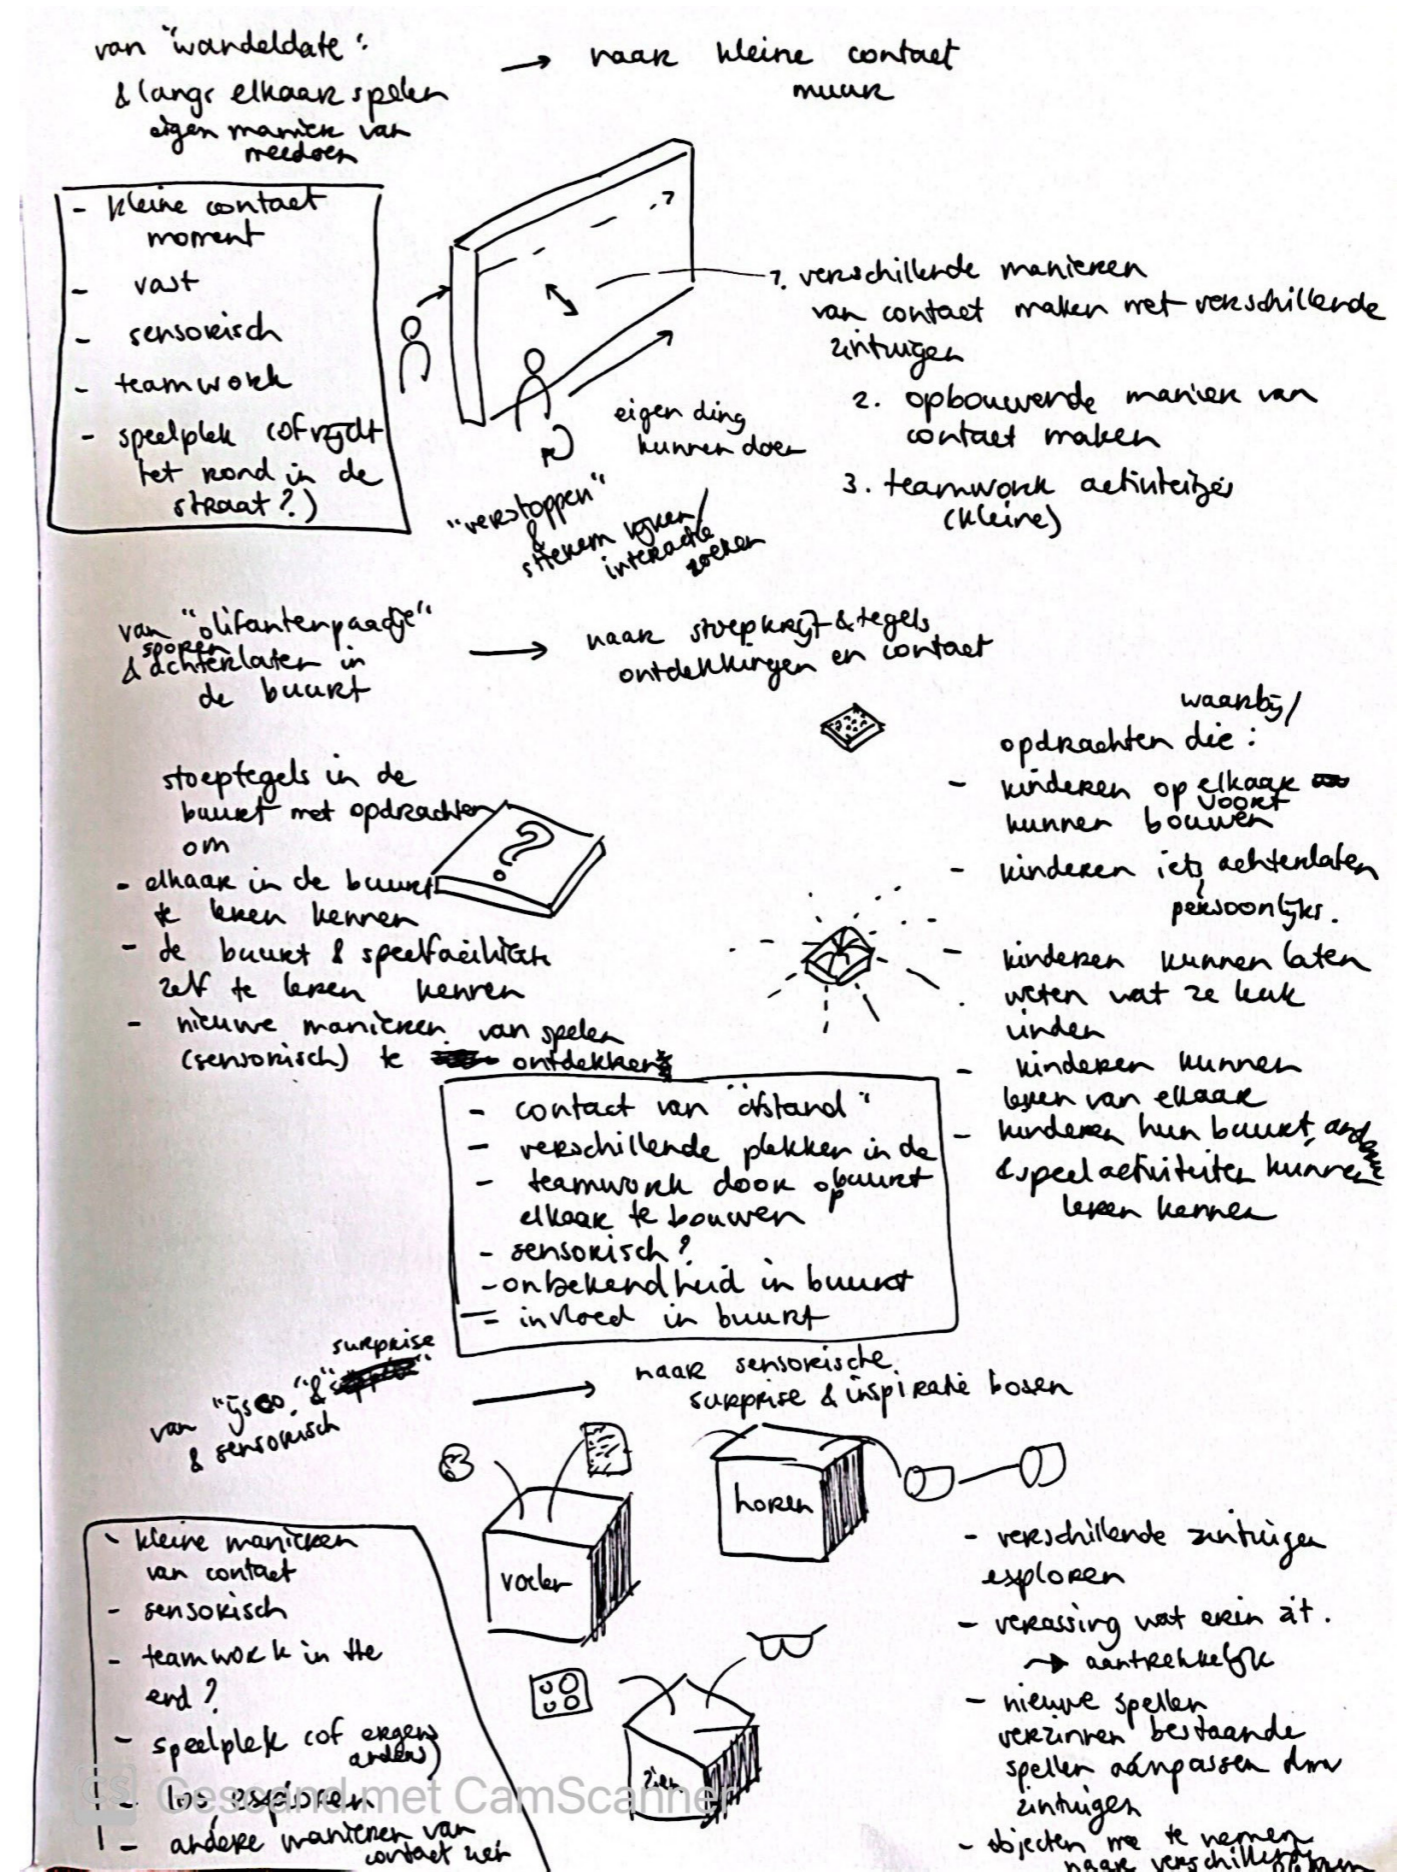 van "wandeldate"
& langs elkaar spelen
eigen manier van
meedoen
→ naar kleine contact
muur
- kleine contact
moment
- vast
- sensorisch
- teamwork
- speelplek (of rijdt
het rond in de
straat?)
eigen ding
kunnen doen
"verstoppen"
&
stiekem kijken/
interactie
zoeken
1. verschillende manieren
van contact maken met verschillende
zintuigen
2. opbouwende manier van
contact maken
3. teamwork activiteitjes
(kleine)
van "olifantenpaadje"
sporen
& achterlaten in
de buurt
→ naar stoepkrijt & tegels
ontdekkingen en contact
stoeptegels in de
buurt met opdrachten
om
- elkaar in de buurt
te leren kennen
- de buurt & speelfaciliteiten
zelf te leren kennen
- nieuwe manieren van spelen
(sensorisch) te ontdekken
?
waarbij/
opdrachten die:
- kinderen op elkaar
voort
kunnen bouwen
- kinderen iets achterlaten
persoonlijks.
- kinderen kunnen laten
weten wat ze leuk
vinden
- kinderen kunnen
leren van elkaar
- kinderen hun buurt, andere
& speelactiviteiten kunnen
leren kennen
- contact van "afstand"
- verschillende plekken in de
buurt
- teamwork door op
elkaar te bouwen
- sensorisch?
- onbekendheid in buurt
- invloed in buurt
surprise
van "ijsco" & "
& sensorisch
→ naar sensorische
surprise & inspiratie boxen
voelen
horen
zien
- kleine manieren
van contact
- sensorisch
- teamwork in the
end?
- speelplek (of ergens
anders)
- los, exploren
- andere manieren van
contact
- verschillende zintuigen
exploren
- verassing wat erin zit.
→ aantrekkelijk
- nieuwe spellen
verzinnen bestaande
spellen aanpassen dmv
zintuigen
- objecten mee te nemen
naar verschillende
Gescand met CamScanner
CS